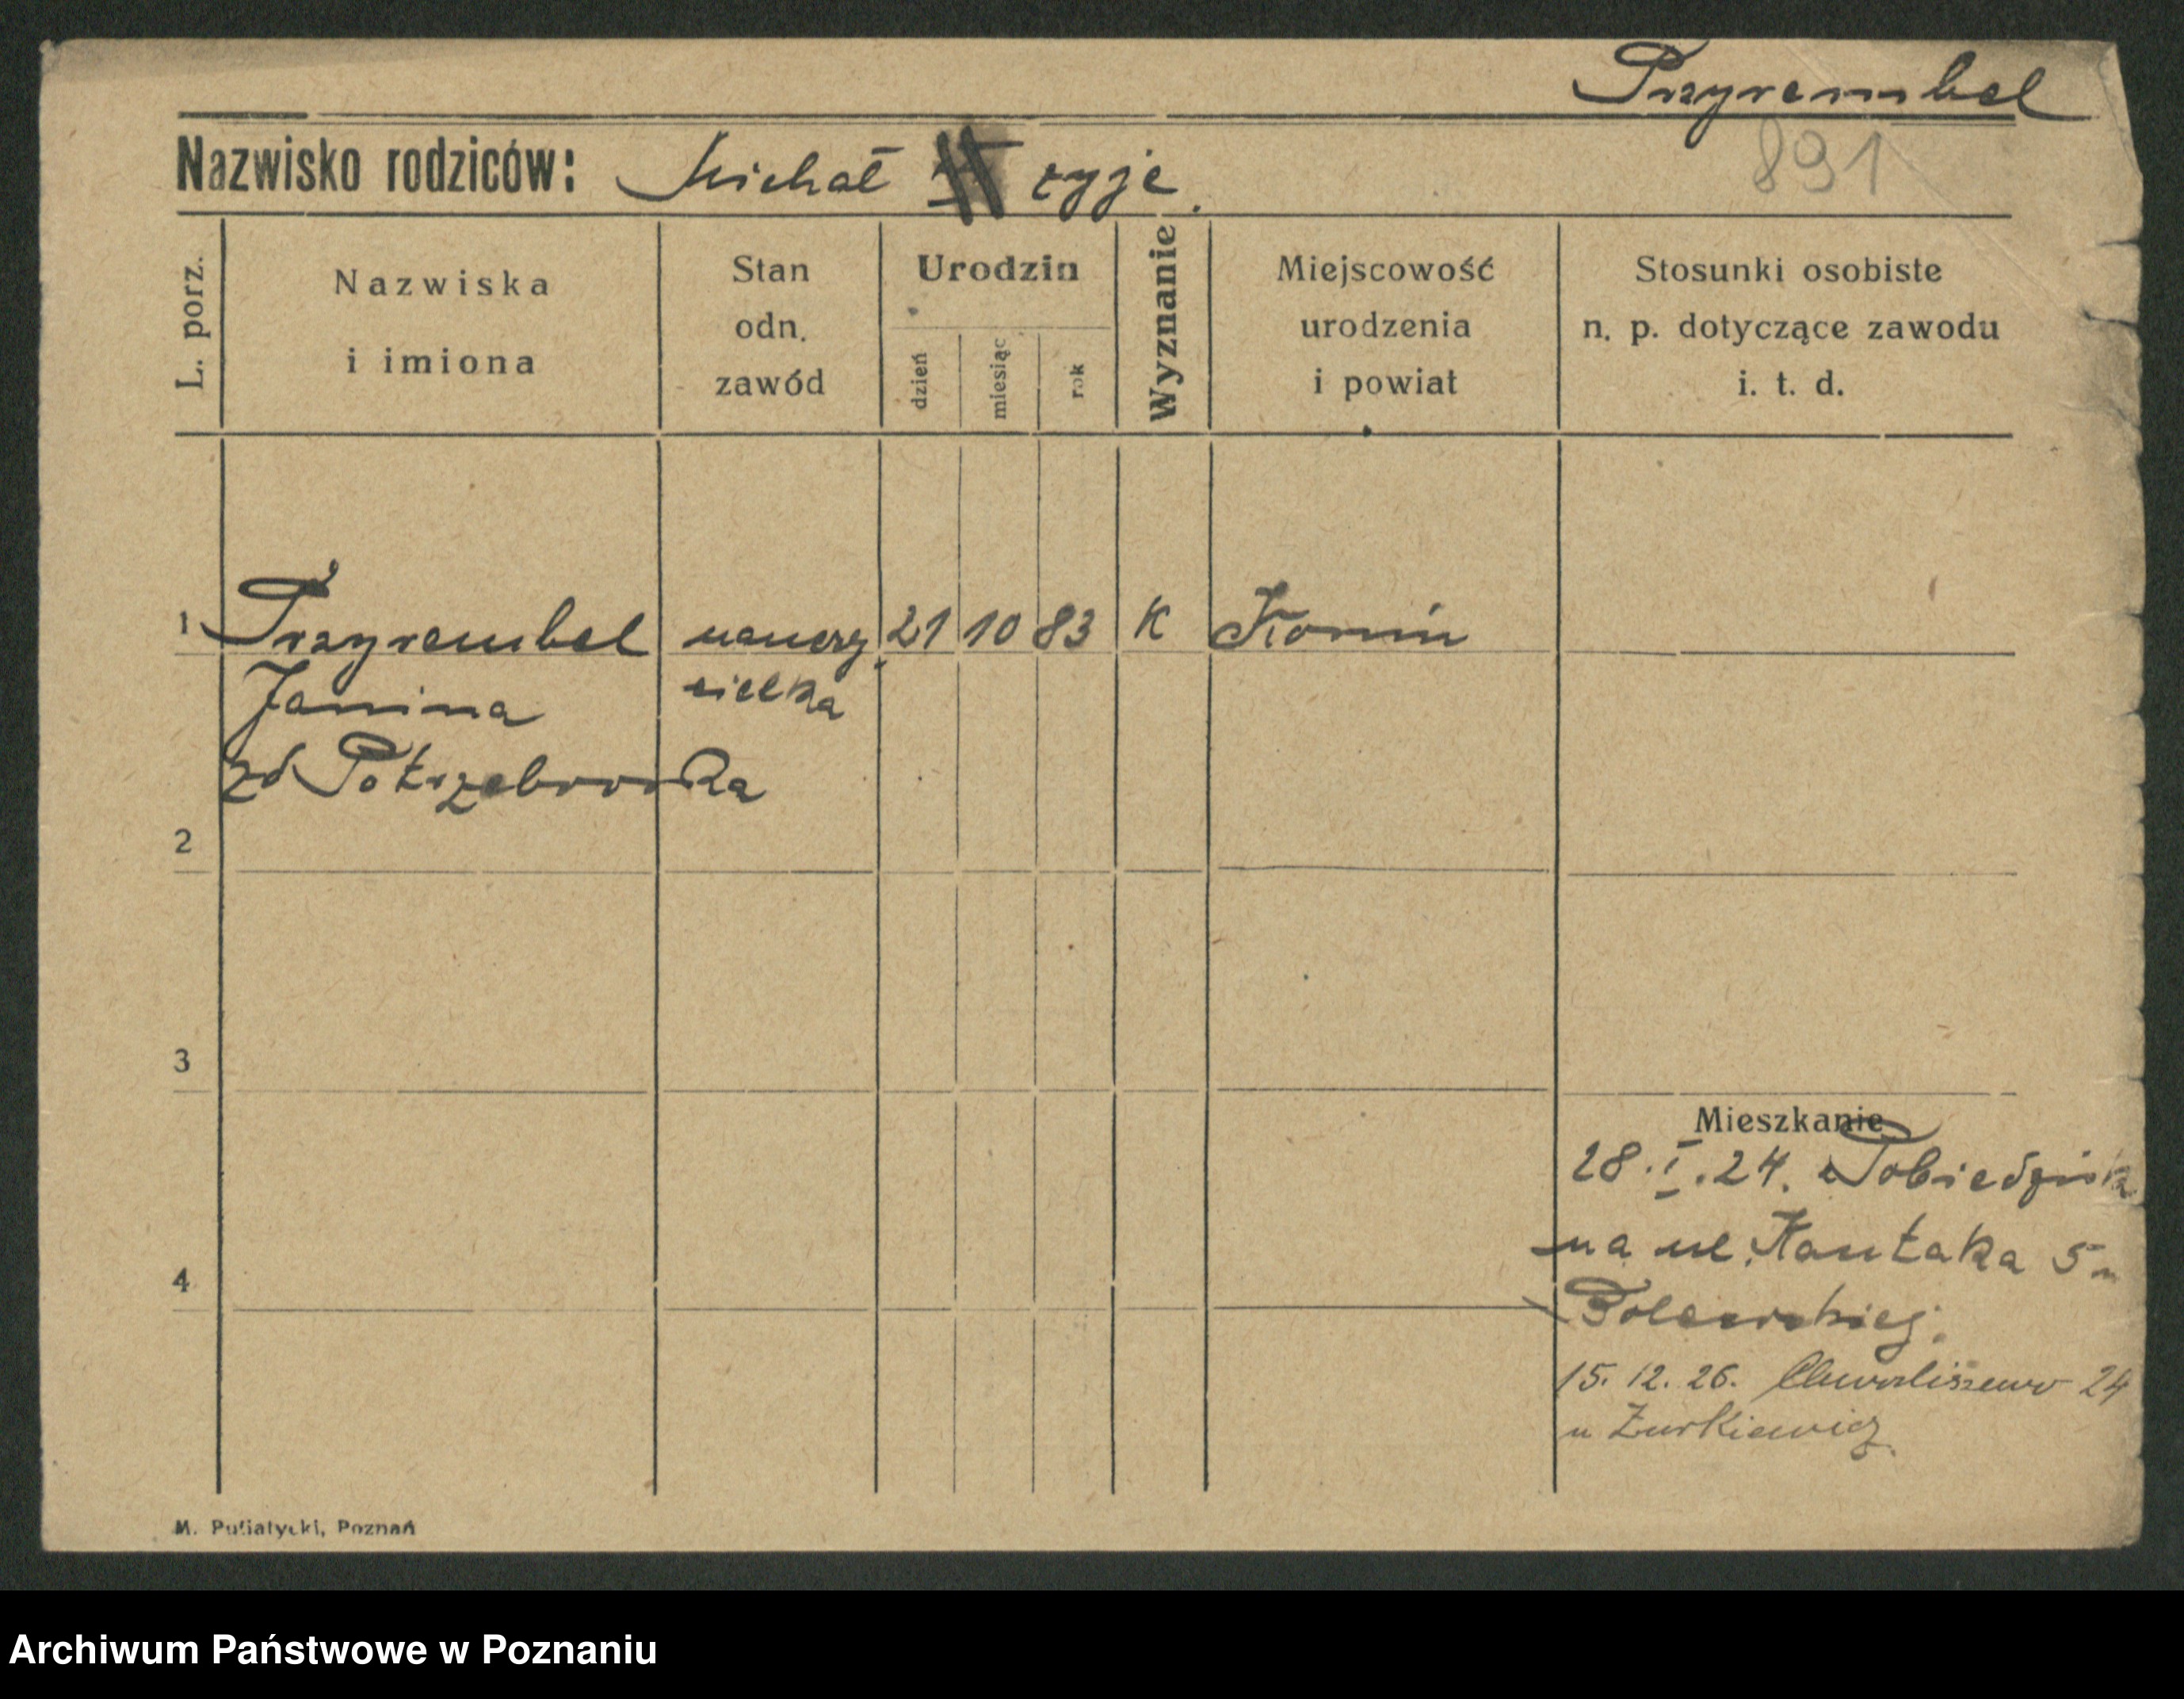 Przyrembel
891
Nazwisko rodziców: Michał żyje.
L. porz.
Nazwiska i imiona
Stan odn. zawód
Urodzin
dzień
miesiąc
rok
Wyznanie
Miejscowość urodzenia i powiat
Stosunki osobiste n. p. dotyczące zawodu i. t. d.
1 Przyrembel nauczy 21 10 83 K Konin
Janina cielka
zd Potrzebowska
2
3
Mieszkanie
28.I.24. Pobiedzisk
na ul. Kantaka 5
4
15. 12. 26. Chwaliszewo 24
u Żurkiewicz.
M. Putiatycki, Poznań
Archiwum Państwowe w Poznaniu